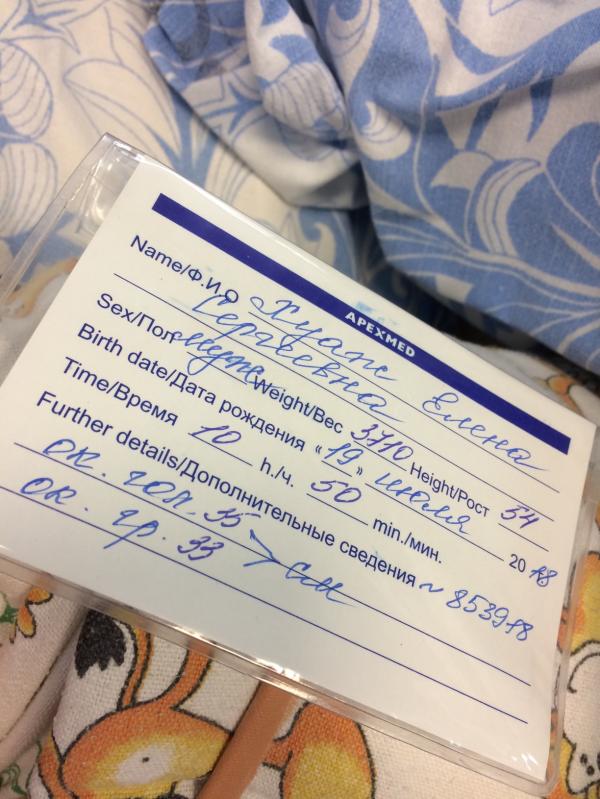 APEXMED
Name/Ф.И.О Хуанг Елена
Сергеевна
Sex/Пол муж Weight/Вес 3710 Height/Рост 54
Birth date/Дата рождения «19» июля 2018
Time/Время 10 h./ч. 50 min./мин.
Further details/Дополнительные сведения ~ 853918
ок. гол. 35
ок. гр. 33 > см